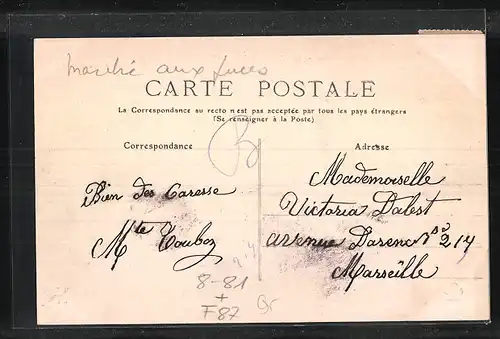 Marché aux puces
CARTE POSTALE
La Correspondance au recto n'est pas acceptée par tous les pays étrangers
(Se renseigner à la Poste)
Correspondance
Adresse
Bien des Caresse
Mlle
Mademoiselle
Victoria Dalest
avenue Darenc Nº 214
Marseille
8-81
+
F87